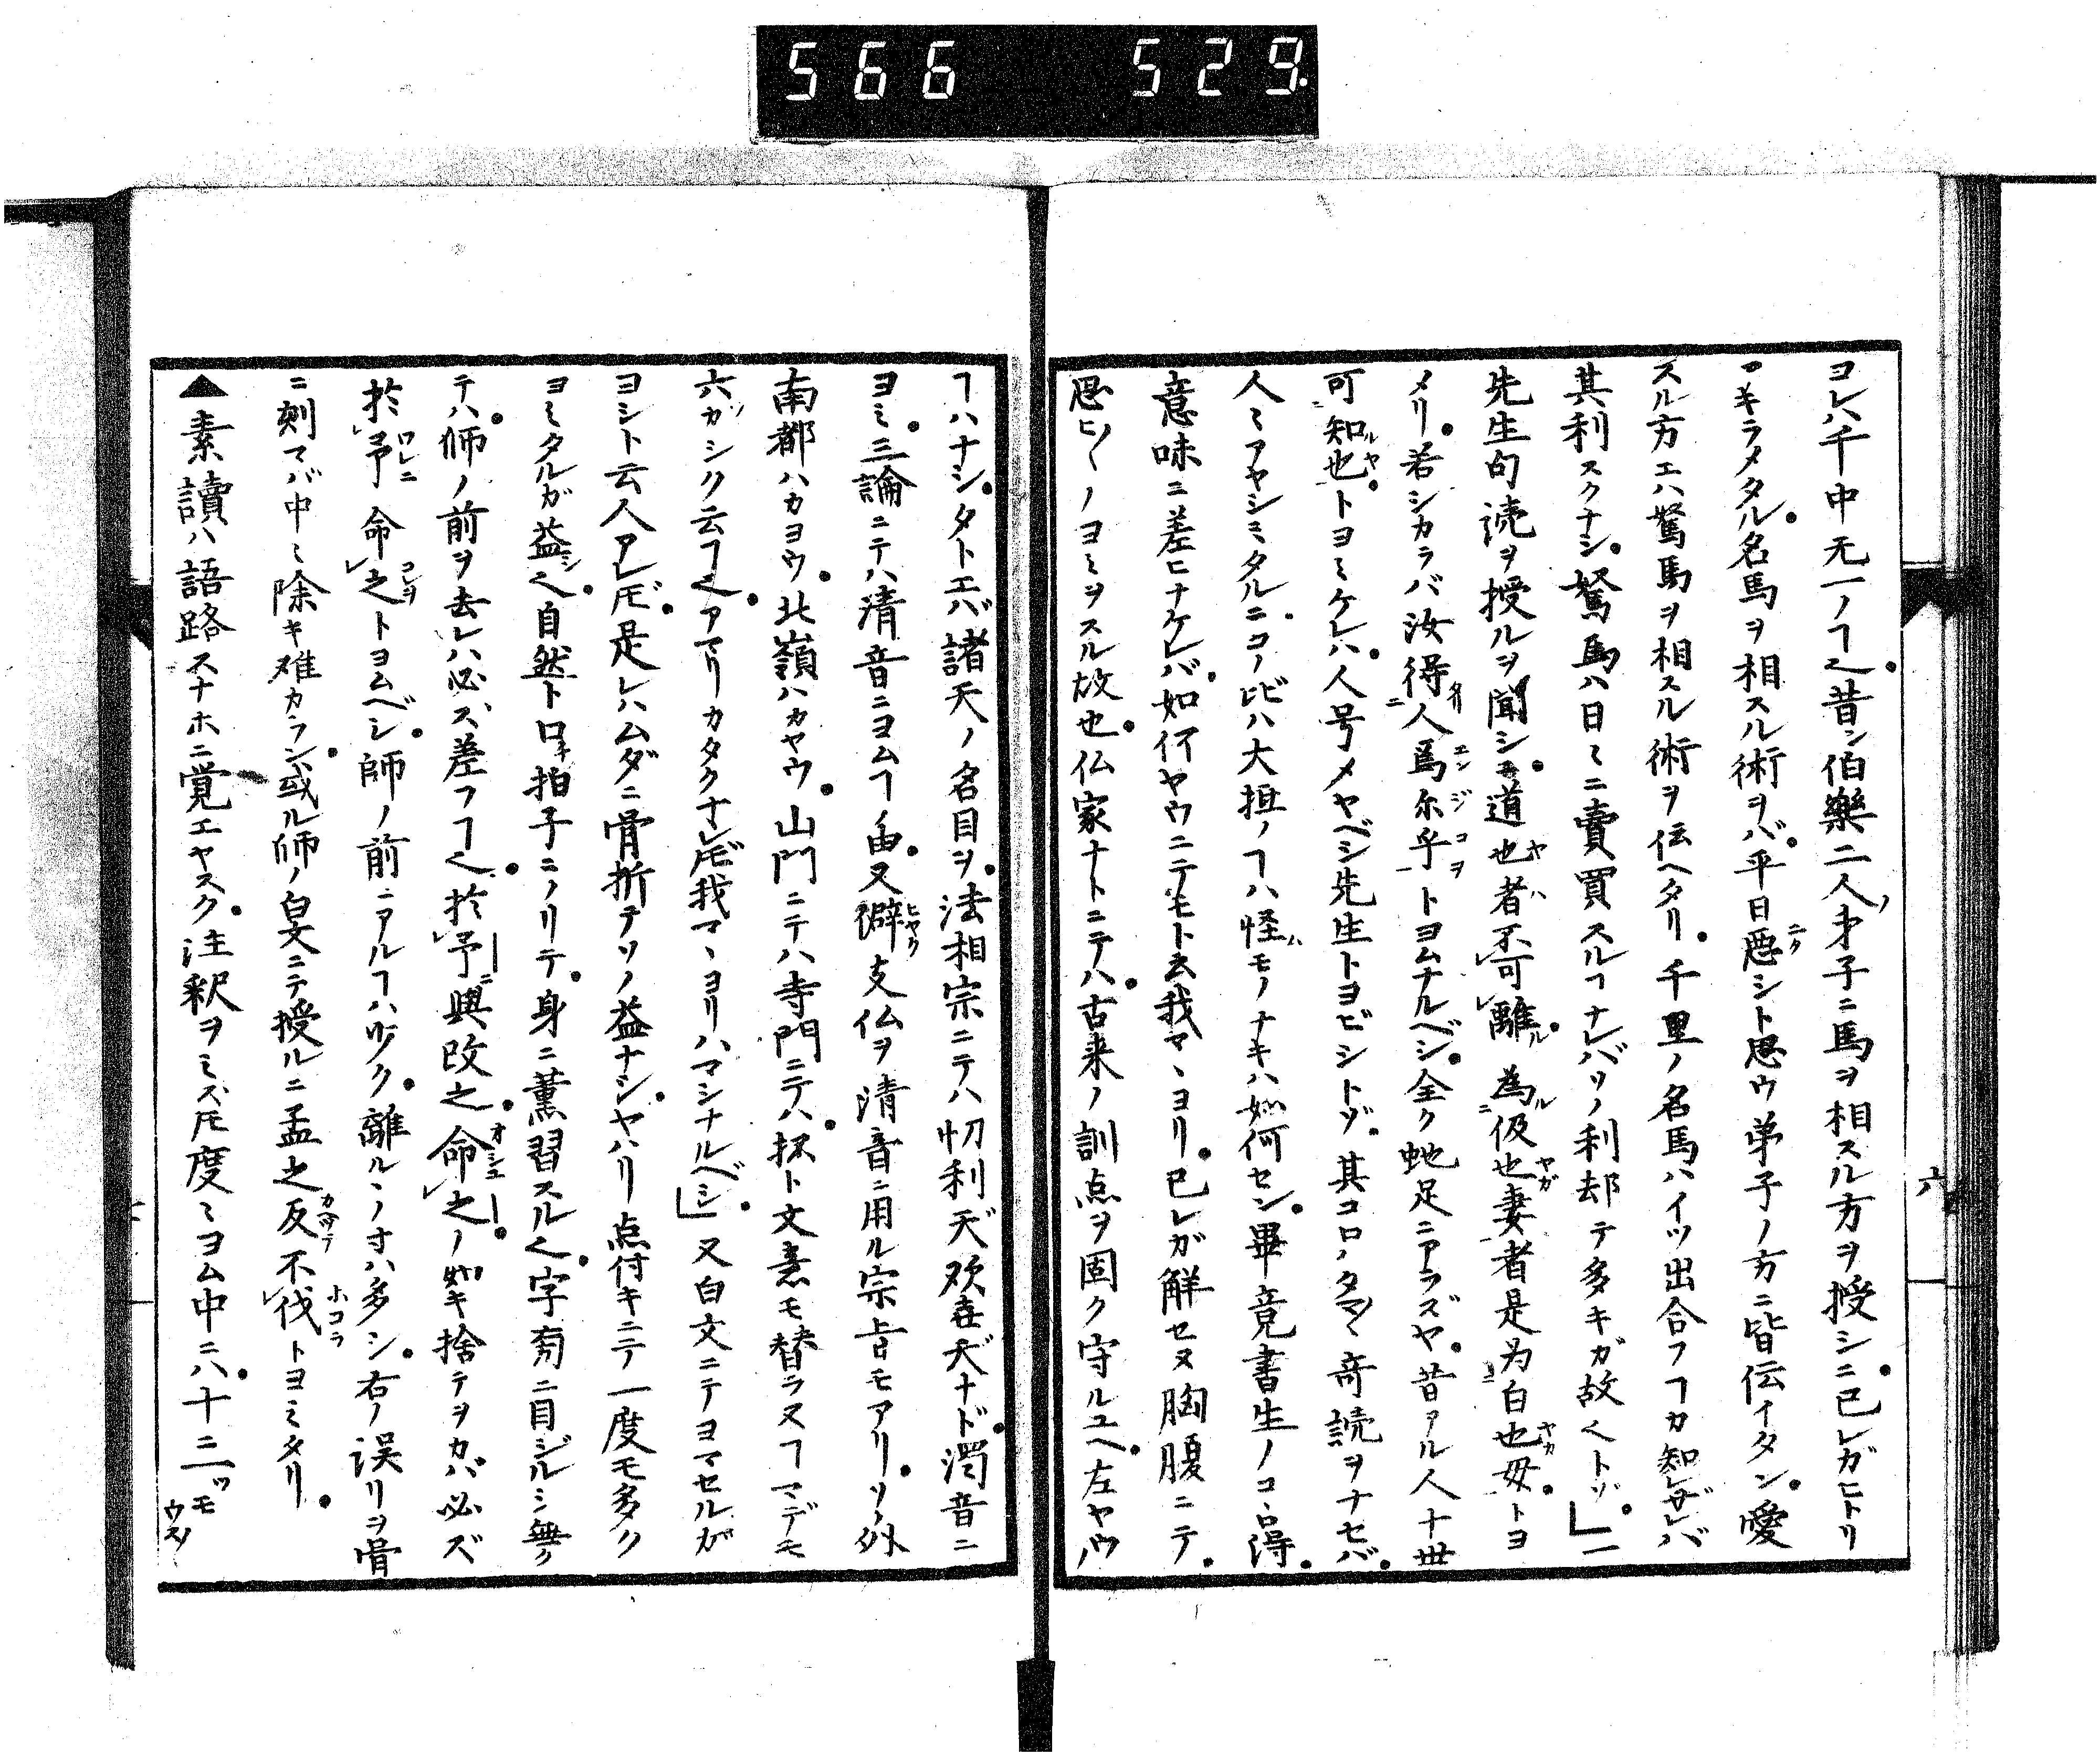 566 529.
コレハ千中无一ノヿ也昔シ伯樂二人ノ弟子ニ馬ヲ相スル方ヲ授シニ已レガヒトリ
アキラメタル名馬ヲ相スル術ヲバ平日惡シト思ウ弟子ノ方ニ皆伝イタシ愛
スル方エハ駑馬ヲ相スル術ヲ伝ヘタリ千里ノ名馬ハイツ出合フヿカ知レザレバ
其利スクナシ駑馬ハ日ミニ賣買スルヿナレバソノ利却テ多キガ故也トゾ」一
先生句読ヲ授ルヲ聞シニ道也者不可離ル為仮也妻者是为白也母トヨ
メリ若シカラバ汝得人焉尓乎トヨムナルベシ全ク虵足ニアラズヤ昔アル人十世
可知也トヨミケレハ人号メヤベシ先生トヨビシトゾ其コロノタマヽ奇読ヲナセバ
人ミアヤシミタルニコノ比ハ大抵ノヿハ怪モノナキハ如何セン畢竟書生ノコヽロ得
意味ニ差ヒナケレバ如何ヤウニテモト云我マヽヨリ已レガ解セヌ胸腹ニテ
思ヒ〳〵ノヨミヲスル故也仏家ナトニテハ古来ノ訓点ヲ固ク守ルユヘ左ヤウノ
六
ヿハナシタトエバ諸天ノ名目ヲ法相宗ニテハ忉利天歓喜天ナド濁音ニ
ヨミ三論ニテハ清音ニヨムヿノ由又僻支仏ヲ清音ニ用ル宗旨モアリソノ外
南都ハカヨウ北嶺ハカヤウ山門ニテハ寺門ニテハ抔ト文意モ替ラヌヿマデモ
六カシク云ヿ也アマリカタクナレ𪜈我マヽヨリハマシナルベシ」又白文ニテヨマセルガ
ヨシト云人アレ𪜈是レハムダニ骨折テソノ益ナシヤハリ点付キニテ一度モ多ク
ヨミタルガ益シ也自然ト口拍子ニノリテ身ニ薫習スル也字旁ニ目ジルシ無ク
テハ師ノ前ヲ去レハ必ズ差フヿ也於予ニ與改之命之ノ如キ捨テヲカバ必ズ
於予命之トヨムベシ師ノ前ニアルヿハ少ク離ルヽノ方ハ多シ右ノ誤リヲ骨
ニ刻マバ中ミ除キ难カラン或ル師ノ白文ニテ授ルニ孟之反不伐トヨミタリ
▲素讀ハ語路スナホニ覚エヤスク注釈ヲミズ𪜈度ミヨム中ニハ十ニ二ツモ